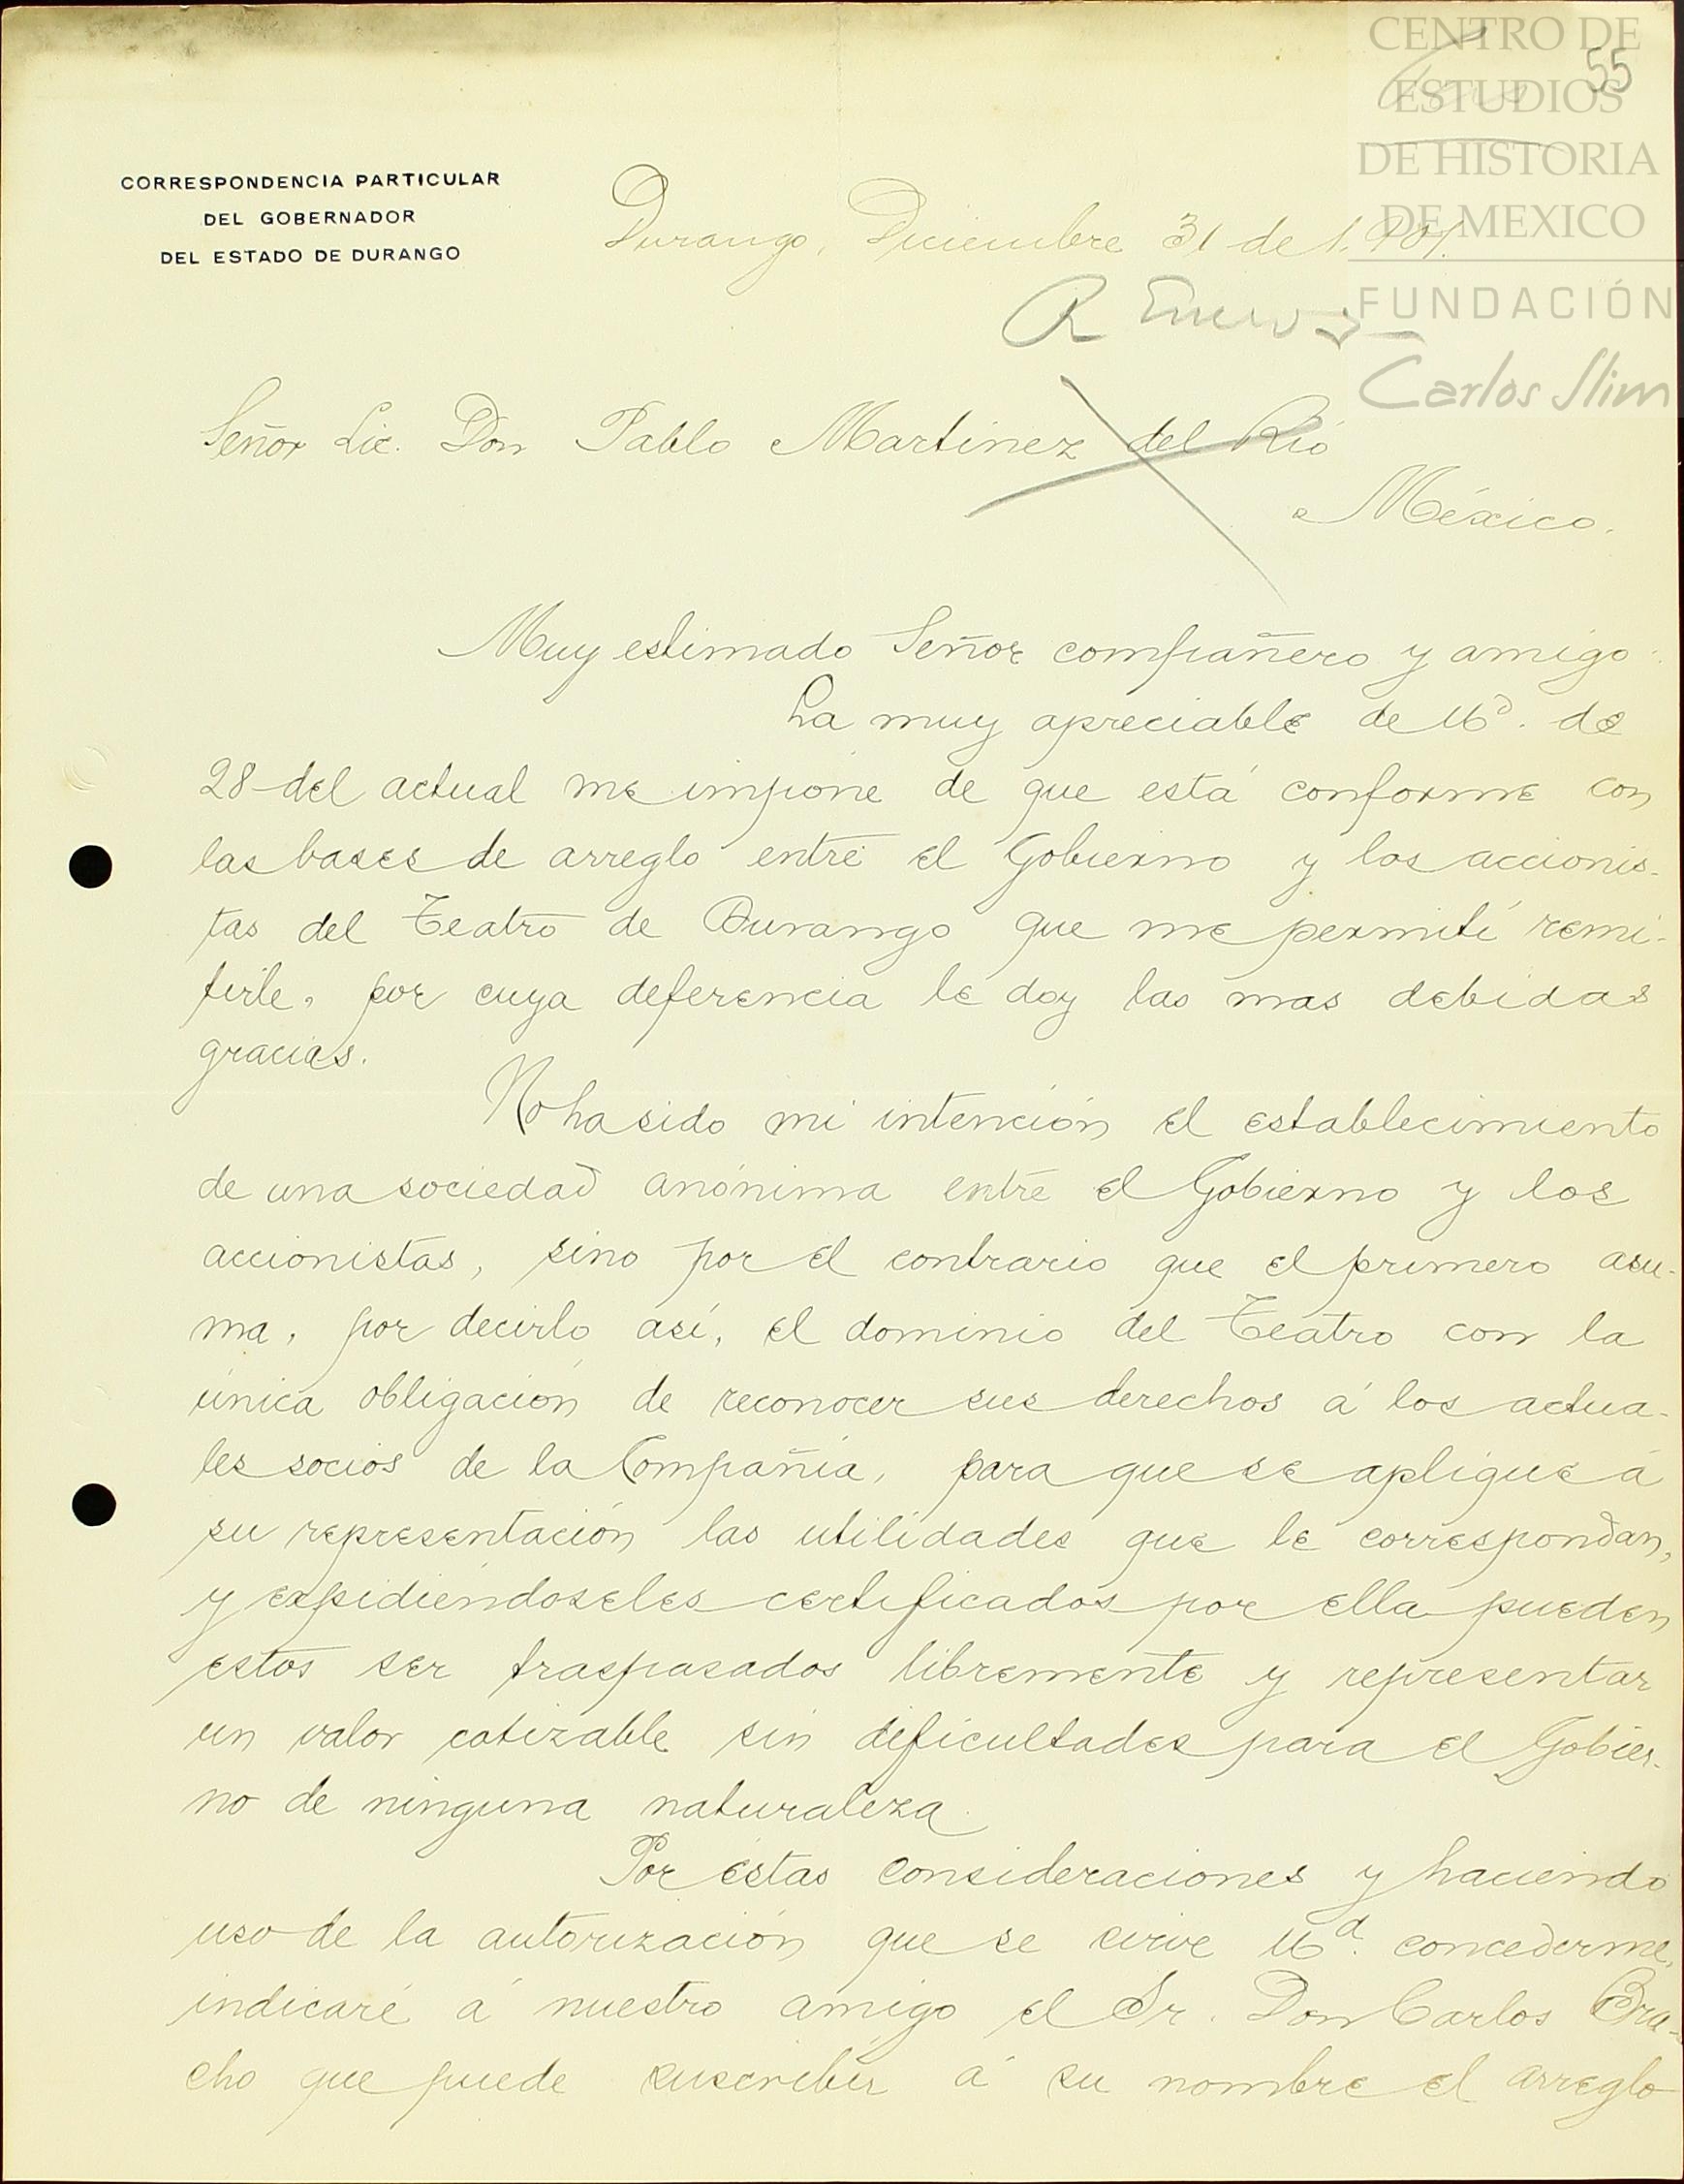 CENTRO DE
ESTUDIOS
DE HISTORIA
DE MEXICO
FUNDACIÓN
Carlos Slim
55
CORRESPONDENCIA PARTICULAR
DEL GOBERNADOR
DEL ESTADO DE DURANGO
Durango, Diciembre 31 de 1,901.
R Enero
Señor Lic. Don Pablo Martinez del Río
México.
Muy estimado Señor compañero y amigo:
La muy apreciable de Ud. de
28 del actual me impone de que está conforme con
las bases de arreglo entre el Gobierno y los accionis-
tas del Teatro de Durango que me permití remi-
tirle, por cuya deferencia le doy las mas debidas
gracias.
No ha sido mi intención el establecimiento
de una sociedad anónima entre el Gobierno y los
accionistas, sino por el contrario que el primero asu-
ma, por decirlo así, el dominio del Teatro con la
única obligación de reconocer sus derechos á los actua-
les socios de la Compañía, para que se aplique á
su representación las utilidades que le correspondan,
y expidiéndoseles certificados por ella pueden
estos ser traspasados libremente y representar
un valor cotizable sin dificultades para el Gobier-
no de ninguna naturaleza.
Por éstas consideraciones y haciendo
uso de la autorización que se sirve Ud. concederme,
indicaré á nuestro amigo el Sr. Don Carlos Bra-
cho que puede suscribir á su nombre el arreglo